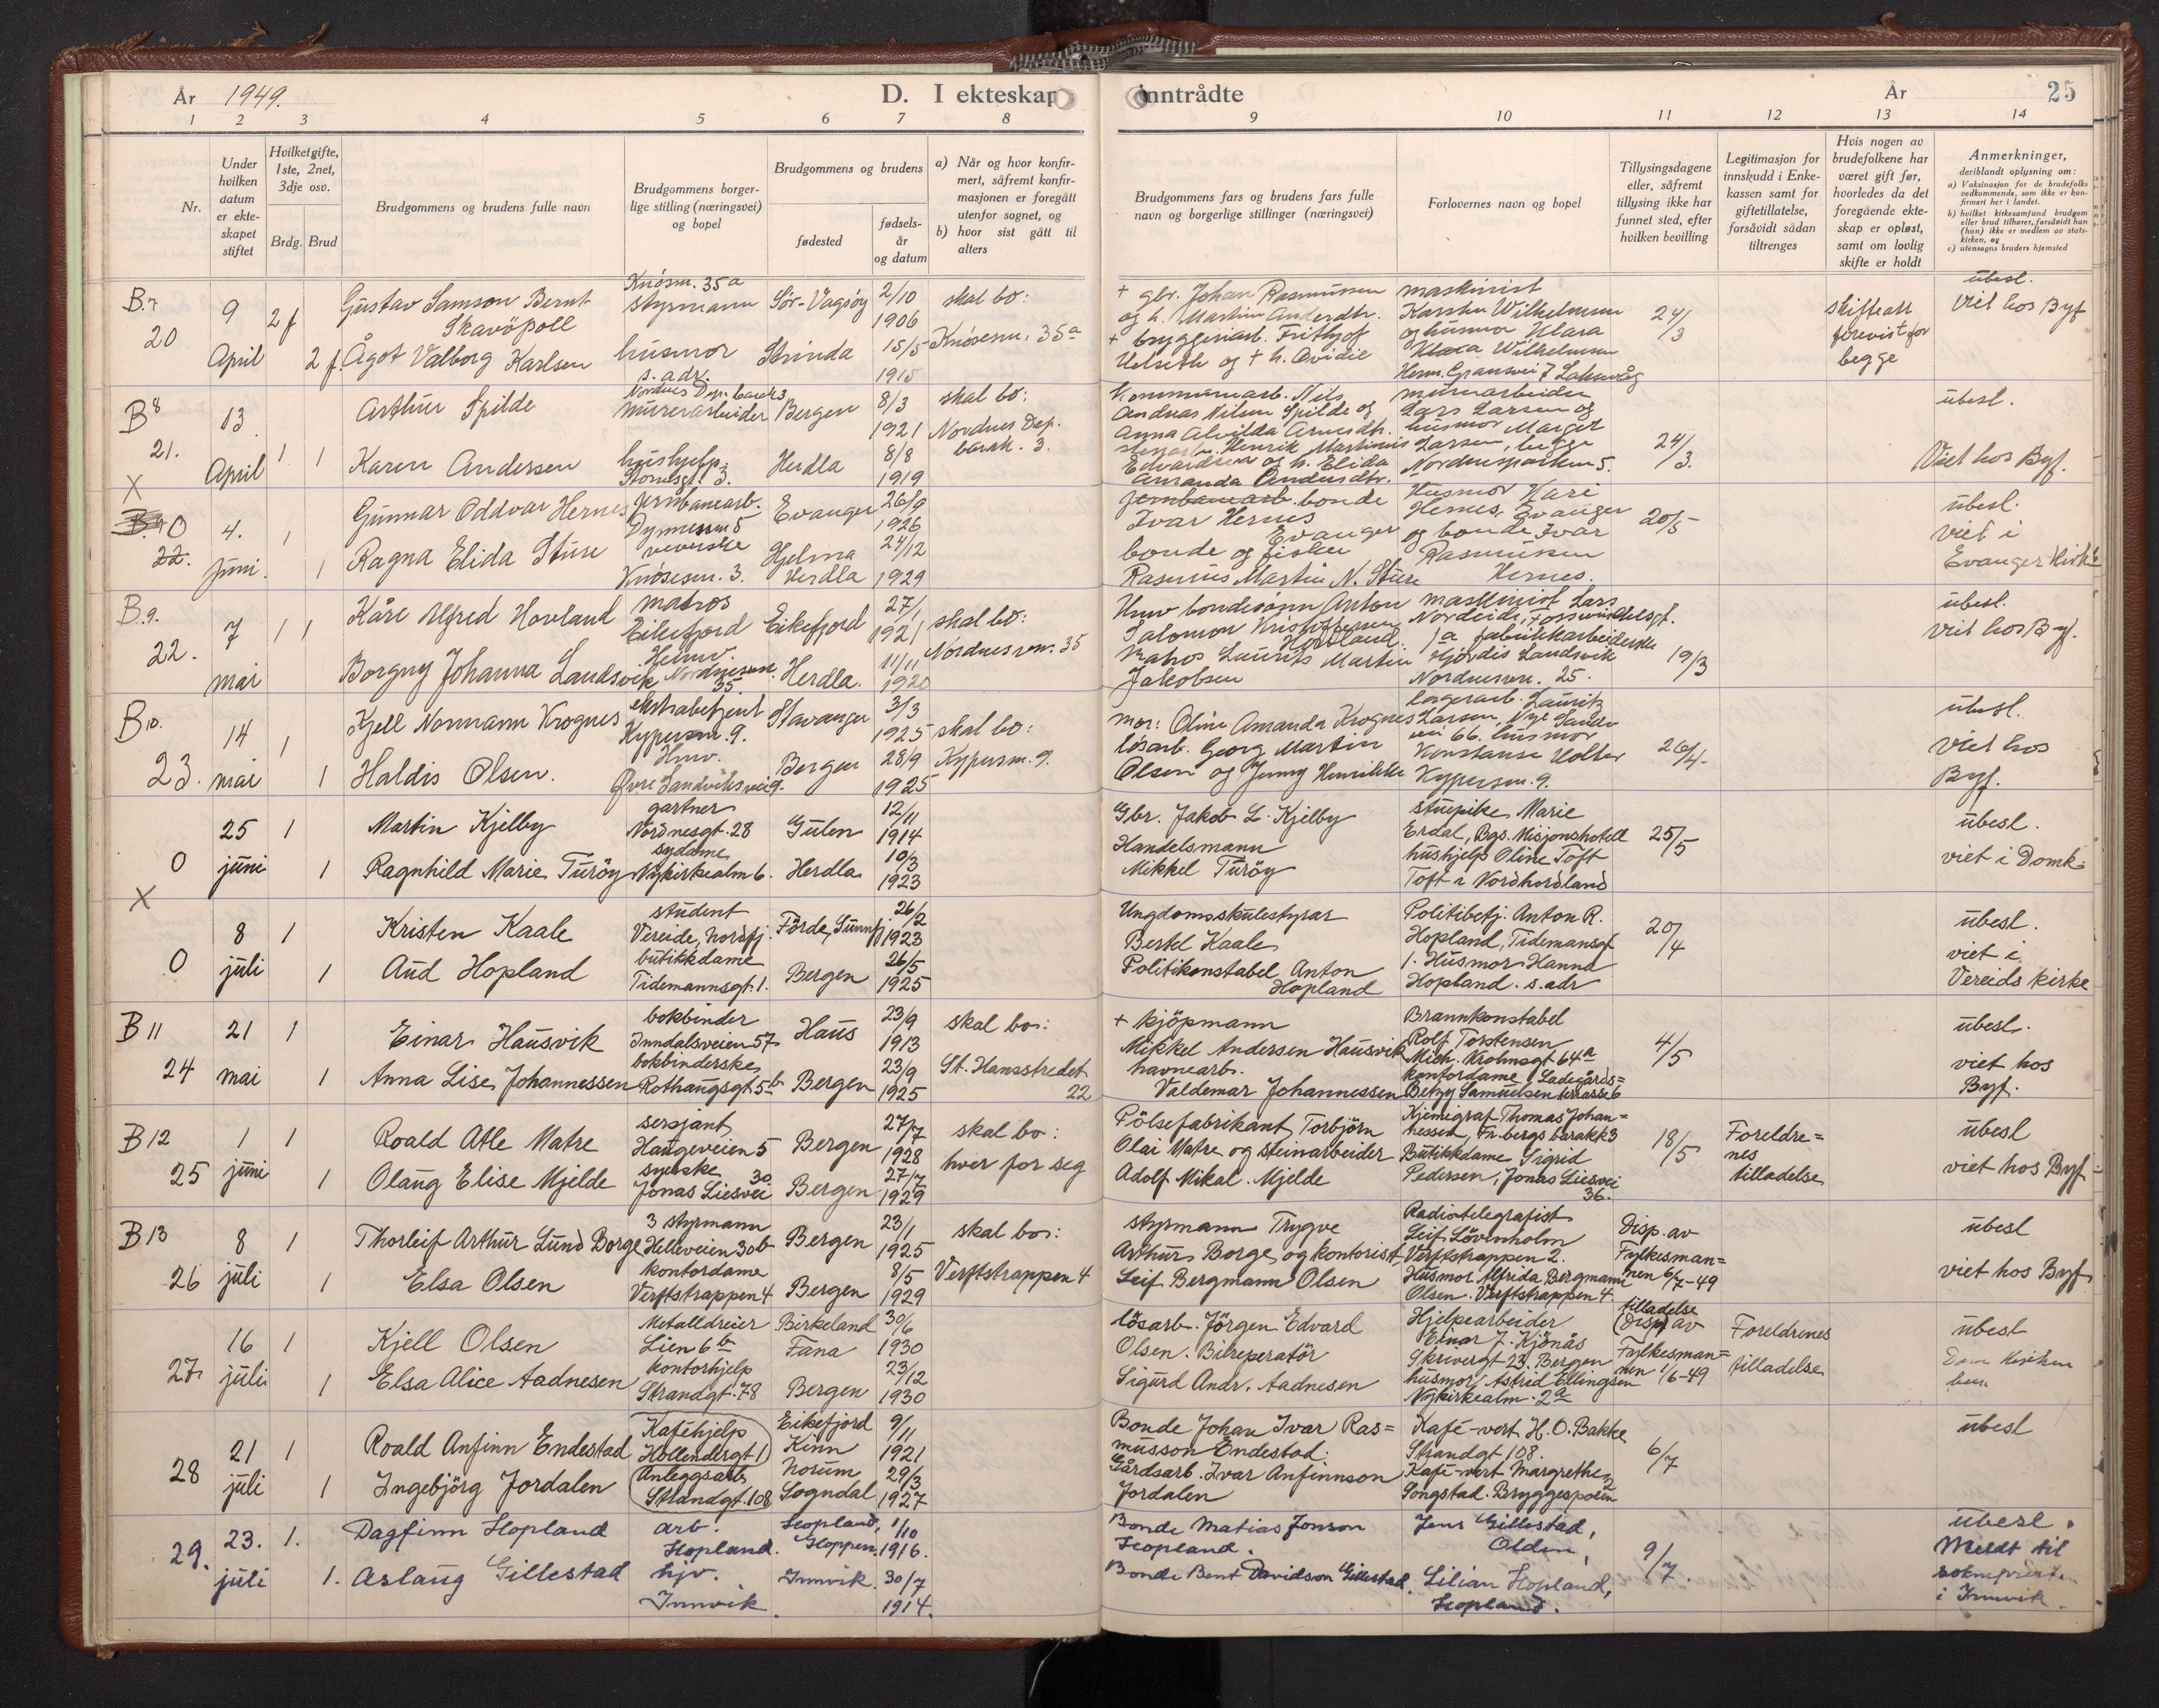 År 1949. D. I ekteskap
1 2 3 4 5 6 7 8
Nr.
Under hvilken datum er ekteskapet stiftet
Hvilket gifte, 1ste, 2net, 3dje osv.
Brdg. Brud
Brudgommens og brudens fulle navn
Brudgommens borgerlige stilling (næringsvei) og bopel
Brudgommens og brudens
fødested
fødselsår og datum
a) Når og hvor konfirmert, såfremt konfirmasjonen er foregått utenfor sognet, og
b) hvor sist gått til alters
inntrådte År 25
9 10 11 12 13 14
Brudgommens fars og brudens fars fulle navn og borgerlige stillinger (næringsvei)
Forlovernes navn og bopel
Tillysingsdagene eller, såfremt tillysing ikke har funnet sted, efter hvilken bevilling
Legitimasjon for innskudd i Enkekassen samt for giftetillatelse, forsåvidt sådan tiltrenges
Hvis nogen av brudefolkene har været gift før, hvorledes da det foregående ekteskap er opløst, samt om lovlig skifte er holdt
Anmerkninger, deriblandt oplysning om:
a) Vaksinasjon for de brudefolks vedkommende, som ikke er konfirmert her i landet.
b) hvilket kirkesamfund brudgom eller brud tilhører, forsåvidt han (hun) ikke er medlem av statskirken, og
c) utensogns bruders hjemsted
B.7 20
9 April 2 f 2 f.
Gustav Samson Bernt Skavöpoll
Knösm. 35 a styrmann Sör-Vågsöy 2/10 1906
Ågot Valborg Karlsen
husmor s. adr. Strinda 15/5 1915
skal bo: Knösesm. 35 a
+ gbr. Johan Rasmussen
og h. Martine Andersdtr.
+ bryggeriarb. Frithjof
Helseth og + h. Ovidie
maskinist
Karsten Wilhelmsen
og husmor Klara
Klara Wilhelmsen
Herm. Gransvei 7 Laksevåg
24/3
skifteatt forevist for begge
übesl.
Viet hos Byf
B 8 21.
13. April 1 1
Arthur Spilde
Nordnes Dep. barak 3 murerarbeider Bergen 8/3 1921
Karen Andersen
hushjelp Herdla 8/8 1919
skal bo: Nordnes Dep. barak. 3.
Kommunearb. Nils
Andreas Nilsen Spilde og
Anna Alvilda Arnesdtr.
Henrik Martinius
Edvardsen og h. Elida
Amanda Andersdtr.
murarbeider
Lars Larsen og
husmor Margit
Larsen, begge
Nordnesparken 5.
24/3.
übesl.
Viet hos Byf.
X 0 22.
4. juni. 1 1
Gunnar Oddvar Hernes
jernbanearb. Evanger 26/9 1926
Ragna Elida Sture
veverske Knösesm. 3. Hjelma Herdla 24/12 1929
jernbanearb. bonde
Ivar Hernes
Evanger
bonde og fisker
Rasmus Martin N. Sture
Husmor Kari
Hernes, Evanger
og bonde Ivar
Rasmussen
Hernes.
20/5
übesl.
viet i
Evanger Kirke
B.9. 22.
7 mai 1 1
Kåre Alfred Hovland
matros Eikefjord Eikefjord 27/1 1921
Borgny Johanna Landsvik
Hmv. Nordnesvn. 35. Herdla. 11/11 1920
skal bo: Nordnesvn. 35
Hmv bondesönn Anton
Salomon Kristoffersen
Hovland.
Matros Laurits Martin
Jakobsen
maskinist Lars
Nordeide,
1a fabrikkarbeiderske
Hjördis Landsvik
Nordnesvn. 25.
19/3
übesl.
viet hos Byf.
B 10. 23.
14 mai 1 1
Kjell Normann Krognes
ekstrabetjent Kypersm. 9. Stavanger 3/3 1925
Haldis Olsen.
Hmv. Övre Sandviksvei 9. Bergen 28/9 1925
skal bo: Kypersm. 9.
mor: Oline Amanda Krognes
lösarb. Georg Martin
Olsen og Jenny Henrikke
lagerarb. Lauritz
Larsen, Nye Sandv
vei 66. husmor
Konstanse Holter
Kypersm. 9.
26/4.
übesl.
viet hos
Byf.
0
25 juni 1 1
Martin Kjelby
gartner Nordnesgt. 28 Gulen 12/11 1914
Ragnhild Marie Turöy
sydame Nykirkealm 6. Herdla 10/3 1923
Gbr. Jakob L. Kjelby
Handelsmann
Mikkel Turöy
stuepike Marie
Erdal, Bgs. Misjonshotell
hushjelp Oline Toft
Toft i Nordhordland
25/5
übesl.
viet i Domk.
X 0
8 juli 1 1
Kristen Kaale
student Vereide, Nordfj. Förde, Sunnfj 26/2 1923
Aud Hopland
butikkdame Tidemannsgt. 1. Bergen 26/5 1925
Ungdomsskulestyrar
Bertel Kaale
Politikonstabel Anton
Hopland
Politibetj. Anton R.
Hopland, Tidemansgt
1. Husmor Hanna
Hopland. s. adr
20/4
übesl.
viet i
Vereids kirke
B 11 24
21 mai 1 1
Einar Hausvik
bokbinder Inndalsveien 57 Haus 23/9 1913
Anna Lise Johannessen
bokbinderske Rothaugsgt 5 b Bergen 23/9 1925
skal bo: St. Hansstredet 22
+ Kjöpmann
Mikkel Andersen Hausvik
havnearb.
Valdemar Johannessen
Brannkonstabel
Rolf Torstensen
Mich. Krohnsgt 64 a
kontordame Ladegårds=
Betzy Samuelsen terrasse 6
4/5
übesl.
viet hos
Byf.
B 12 25
1 juni 1 1
Roald Atle Matre
sersjant Haugeveien 5 Bergen 27/7 1928
Olaug Elise Mjelde
syerske Jonas Liesvei 30 Bergen 27/7 1929
skal bo: hver for seg
Pölsefabrikant Torbjörn
Olai Matre og steinarbeider
Adolf Mikal. Mjelde
Kjemigraf Thomas Johan=
nessen, Fr.bergs barakk 3
Butikkdame Sigrid
Pedersen, Jonas Liesvei
36.
18/5
Foreldre=
nes
tilladelse
übesl
viet hos Byf
B 13 26
8 juli 1 1
Thorleif Arthur Lund Borge
3 styrmann Helleveien 30b Bergen 23/1 1925
Elsa Olsen
kontordame Verftstrappen 4 Bergen 8/5 1929
skal bo: Verftstrappen 4
styrmann Trygve
Arthur Borge, og kontorist
Leif Bergmann Olsen
Radiotelegrafist
Leif Lövenholm
Verftstrappen 2.
Husmor Alfrida Bergmann
Olsen. Verftstrappen 4
Disp. av
Fylkesman=
nen 6/7-49
übesl
viet hos Byf
27
16 juli 1 1
Kjell Olsen
Metalldreier Lien 6 b Birkeland Fana 30/6 1930
Elsa Alice Aadnesen
kontorhjelp Strandgt. 78 Bergen 23/12 1930
lösarb. Jörgen Edvard
Olsen. Bilreperatör
Sigurd Andr. Aadnesen
Hjelpearbeider
Einar J. Kjönås
Skrivergt 23, Bergen
husmor Astrid Ellingsen
Nykirkealm. 2a
tilladelse
(Disp) av
Fylkesman=
nen 1/6-49
Foreldrenes
tilladelse
übesl
28
21 juli 1 1
Roald Anfinn Endestad
Kaféhjelp Hollendergt 1 Eikefjord Kinn 9/11 1921
Ingebjörg Jordalen
Anleggsarb Strandgt. 108 Norum Sogndal 29/3 1927
Bonde Johan Ivar Ras=
musson Endestad.
Gårdsarb. Ivar Anfinnson
Jordalen
Kafé-vert H.O. Bakke
Strandgt 108.
Kafé-vert Margrethe
Songstad. Bryggesporen 2
6/7
übesl
29.
23. juli 1. 1.
Dagfinn Hopland
arb. Hopland. Hopland, Hoppen. 1/10 1916.
Aslaug Gillestad
hjv. Innvik. Innvik. 30/7 1914.
Bonde Matias Jonson
Hopland.
Bonde Bent Davidson Gillestad.
Jens Gillestad,
Olden,
Lilian Hopland,
Hopland.
9/7.
übesl.
Meldt til
soknepresten
i Innvik.